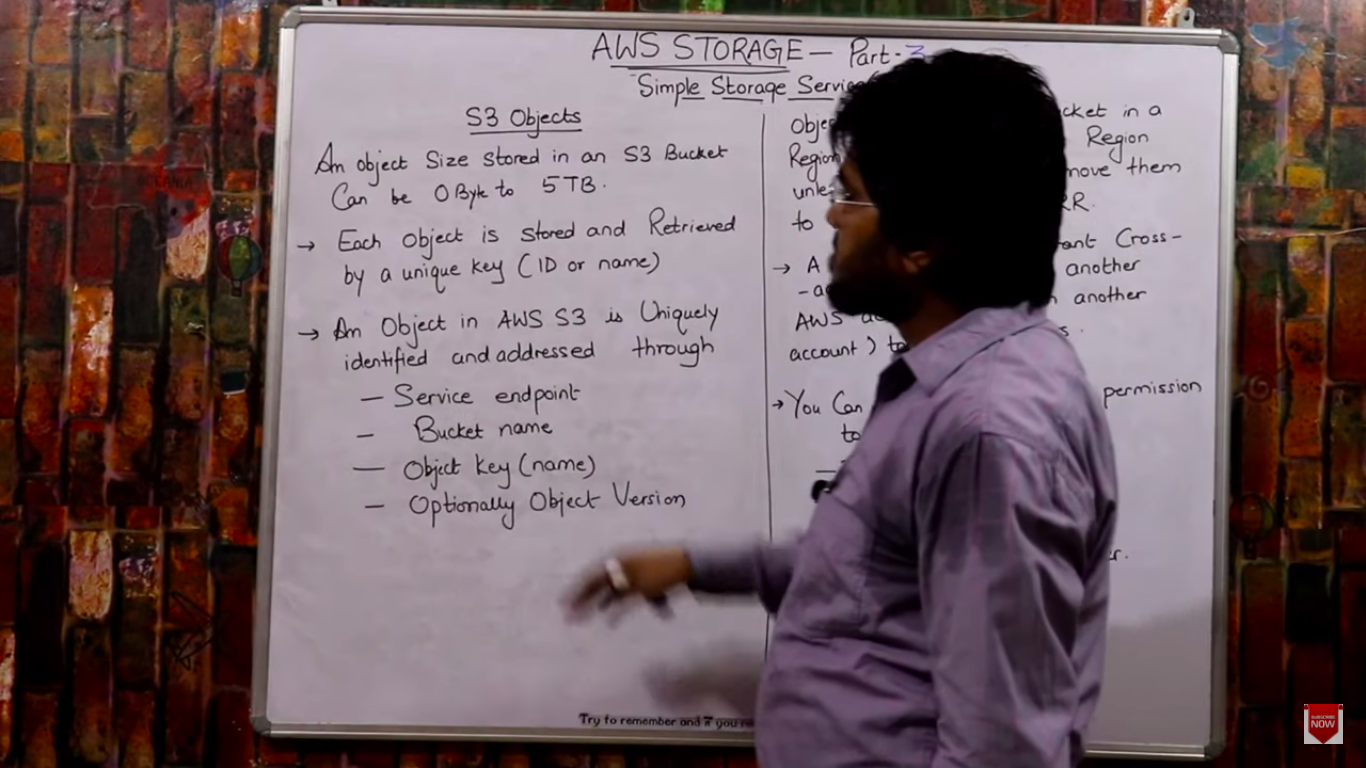 AWS STORAGE — Part-3
Simple Storage Service
S3 Objects
An object Size stored in an S3 Bucket
Can be 0 Byte to 5 TB.
→ Each object is stored and Retrieved
by a unique key (ID or name)
→ An Object in AWS S3 is Uniquely
identified and addressed through
— Service endpoint
— Bucket name
— Object key (name)
— Optionally Object Version
in a
Region
Region
move them
to
→ A
Cross-
another
another
AWS
account)
→ You Can
permission
Try to remember and if you
SUBSCRIBE
NOW